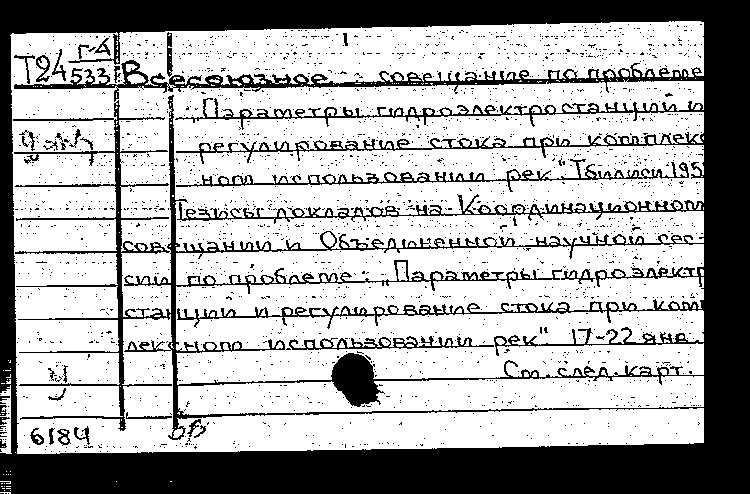 Т24 Г-4
533 Всесоюзное совещание по проблеме
„Параметры гидроэлектростанций и
регулирование стока при комплекс
ном использовании рек". Тбилиси. 195
Тезисы докладов на Координационном
совещании и Объединенной научной сес-
сии по проблеме: „Параметры гидроэлектр
станций и регулирование стока при комп
лексном использовании рек" 17-22 янв.
См. след. карт.
6184